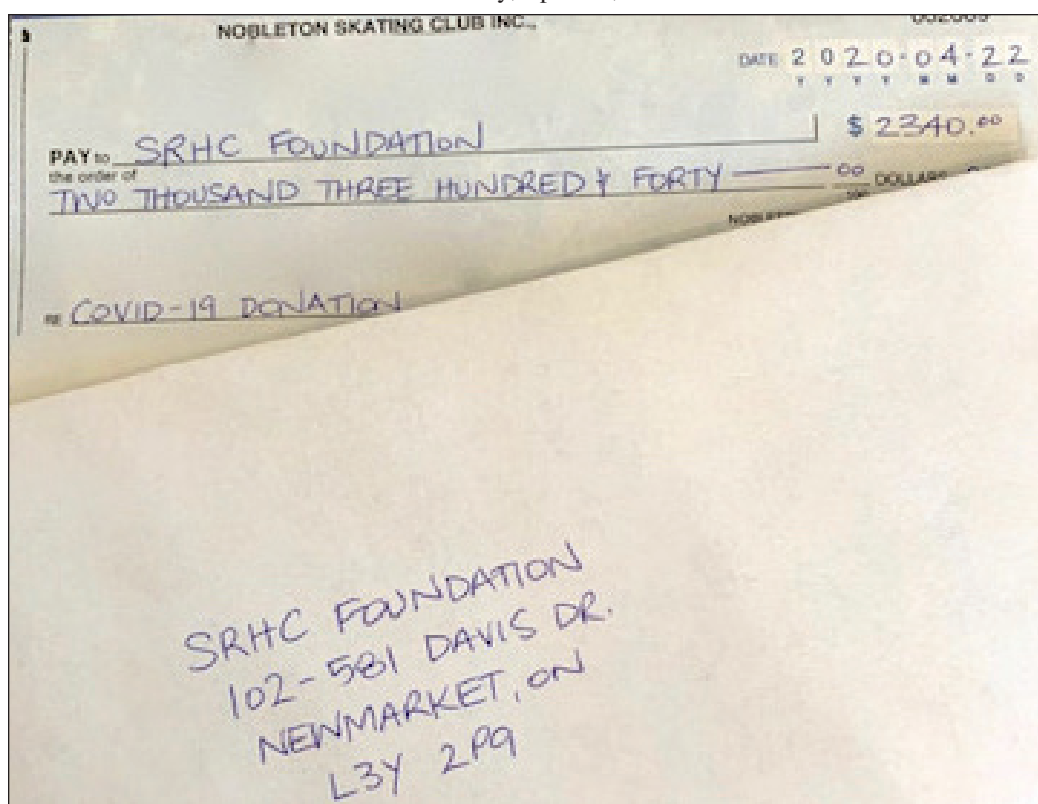 NOBLETON SKATING CLUB INC.
DATE 2020-04-22
Y Y Y Y M M D D
PAY to the order of SRHC FOUNDATION $ 2340.00
TWO THOUSAND THREE HUNDRED & FORTY 00 DOLLARS
RE COVID-19 DONATION
SRHC FOUNDATION
102-581 DAVIS DR.
NEWMARKET, ON
L3Y 2P9